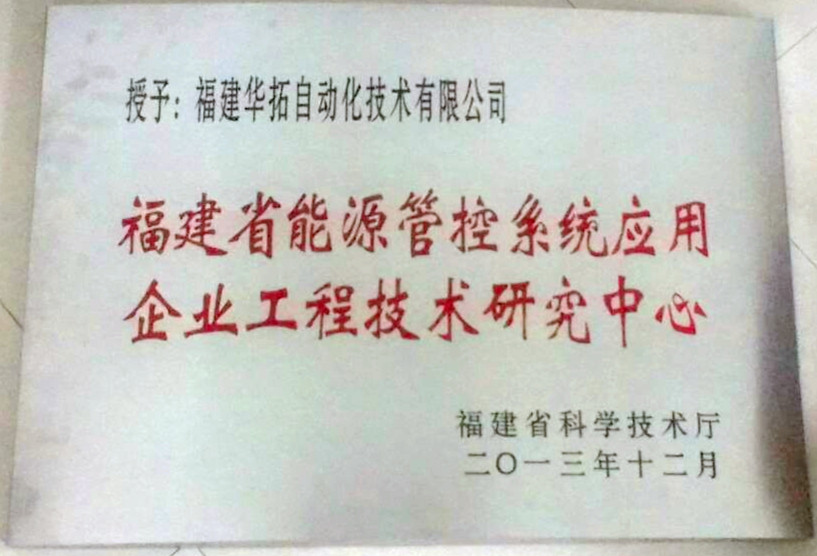 授予：福建华拓自动化技术有限公司
福建省能源管控系统应用
企业工程技术研究中心
福建省科学技术厅
二〇一三年十二月